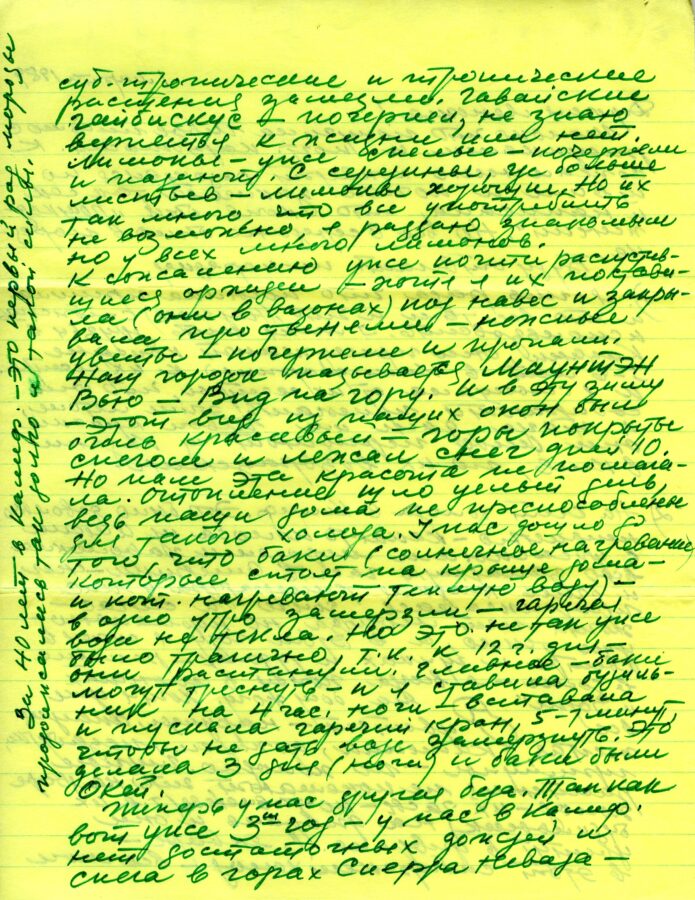 суб.тропические и тропические
растения замерзли. Гавайский
гайбискус I почернел, не знаю
вернется к жизни или нет.
Лимоны – уже спелые – почернели
и падают. С середины, где больше
листьев – лимоны хорошии. Но их
так много что все употребить
не возможно я раздаю знакомым
но у всех много лимонов.
К сожалению уже почти распустив-
шиеся орхидеи – хотя я их постави-
ла (они в вазонах) под навес и закры-
вала простенями – нежные
цветы – почернели и пропали.
Наш городок называется Маунтэн
Вью – Вид на гору. И в эту зиму
– этот вид из наших окон был
очень красивый – горы покрыты
снегом и лежал снег дней 10.
Но нам эта красота не помога-
ла. Отопление шло целый день,
ведь наши дома не приспособлены
для такого холода. У нас дошло до
того что баки (солнечное нагревание)
которые стоят на крыше дома –
и кот. нагревают теплую воду) –
в одно утро замерзли – гарячая
вода не текла. Но это не так уже
было трагично т.к. к 12 г. дня –
они растаяли. Главное – баки
могут треснуть – и я ставила будиль-
ник на 4 час. ночи – вставала
и пускала гарячий кран, 5-7 минут
чтобы не дать воде замерзнуть. Это
делала 3 дня (ночи) и баки были
Окей.
Теперь у нас другая беда. Так как
вот уже 3ий год – у нас в Калиф.
нет достаточных дождей и
снега в горах Сиерра Невада –
За 40 лет в Калиф. – это первый раз морозы
продолжались так долго и такой силы.